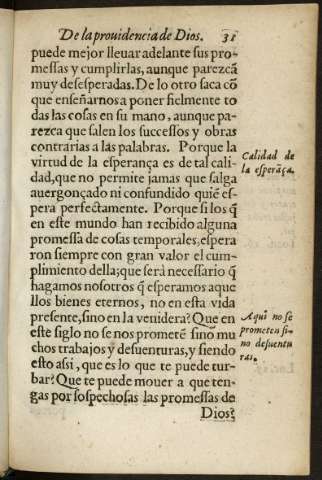 De la prouidencia de Dios. 31
puede mejor lleuar adelante sus pro-
messas y cumplirlas, aunque parezcã
muy desesperadas. De lo otro saca cõ
que enseñarnos a poner fielmente to
das las cosas en su mano, aunque pa-
rezca que salen los successos y obras
contrarias a las palabras. Porque la
virtud de la esperança es de tal cali-
dad, que no permite jamas que salga
auergonçado ni confundido quiẽ es-
pera perfectamente. Porque si los q̃
en este mundo han recibido alguna
promessa de cosas temporales, espera
ron siempre con gran valor el cum-
plimiento della; que será necessario q̃
hagamos nosotros q̃ esperamos aque
llos bienes eternos, no en esta vida
presente, sino en la venidera? Que en
este siglo no se nos prometẽ sino mu
chos trabajos y desuenturas, y siendo
esto assi, que es lo que te puede tur-
bar? Que te puede mouer a que ten-
gas por sospechosas las promessas de
Dios?
Calidad de
la esperãça.
Aqui no se
prometen si-
no desuentu
ras.